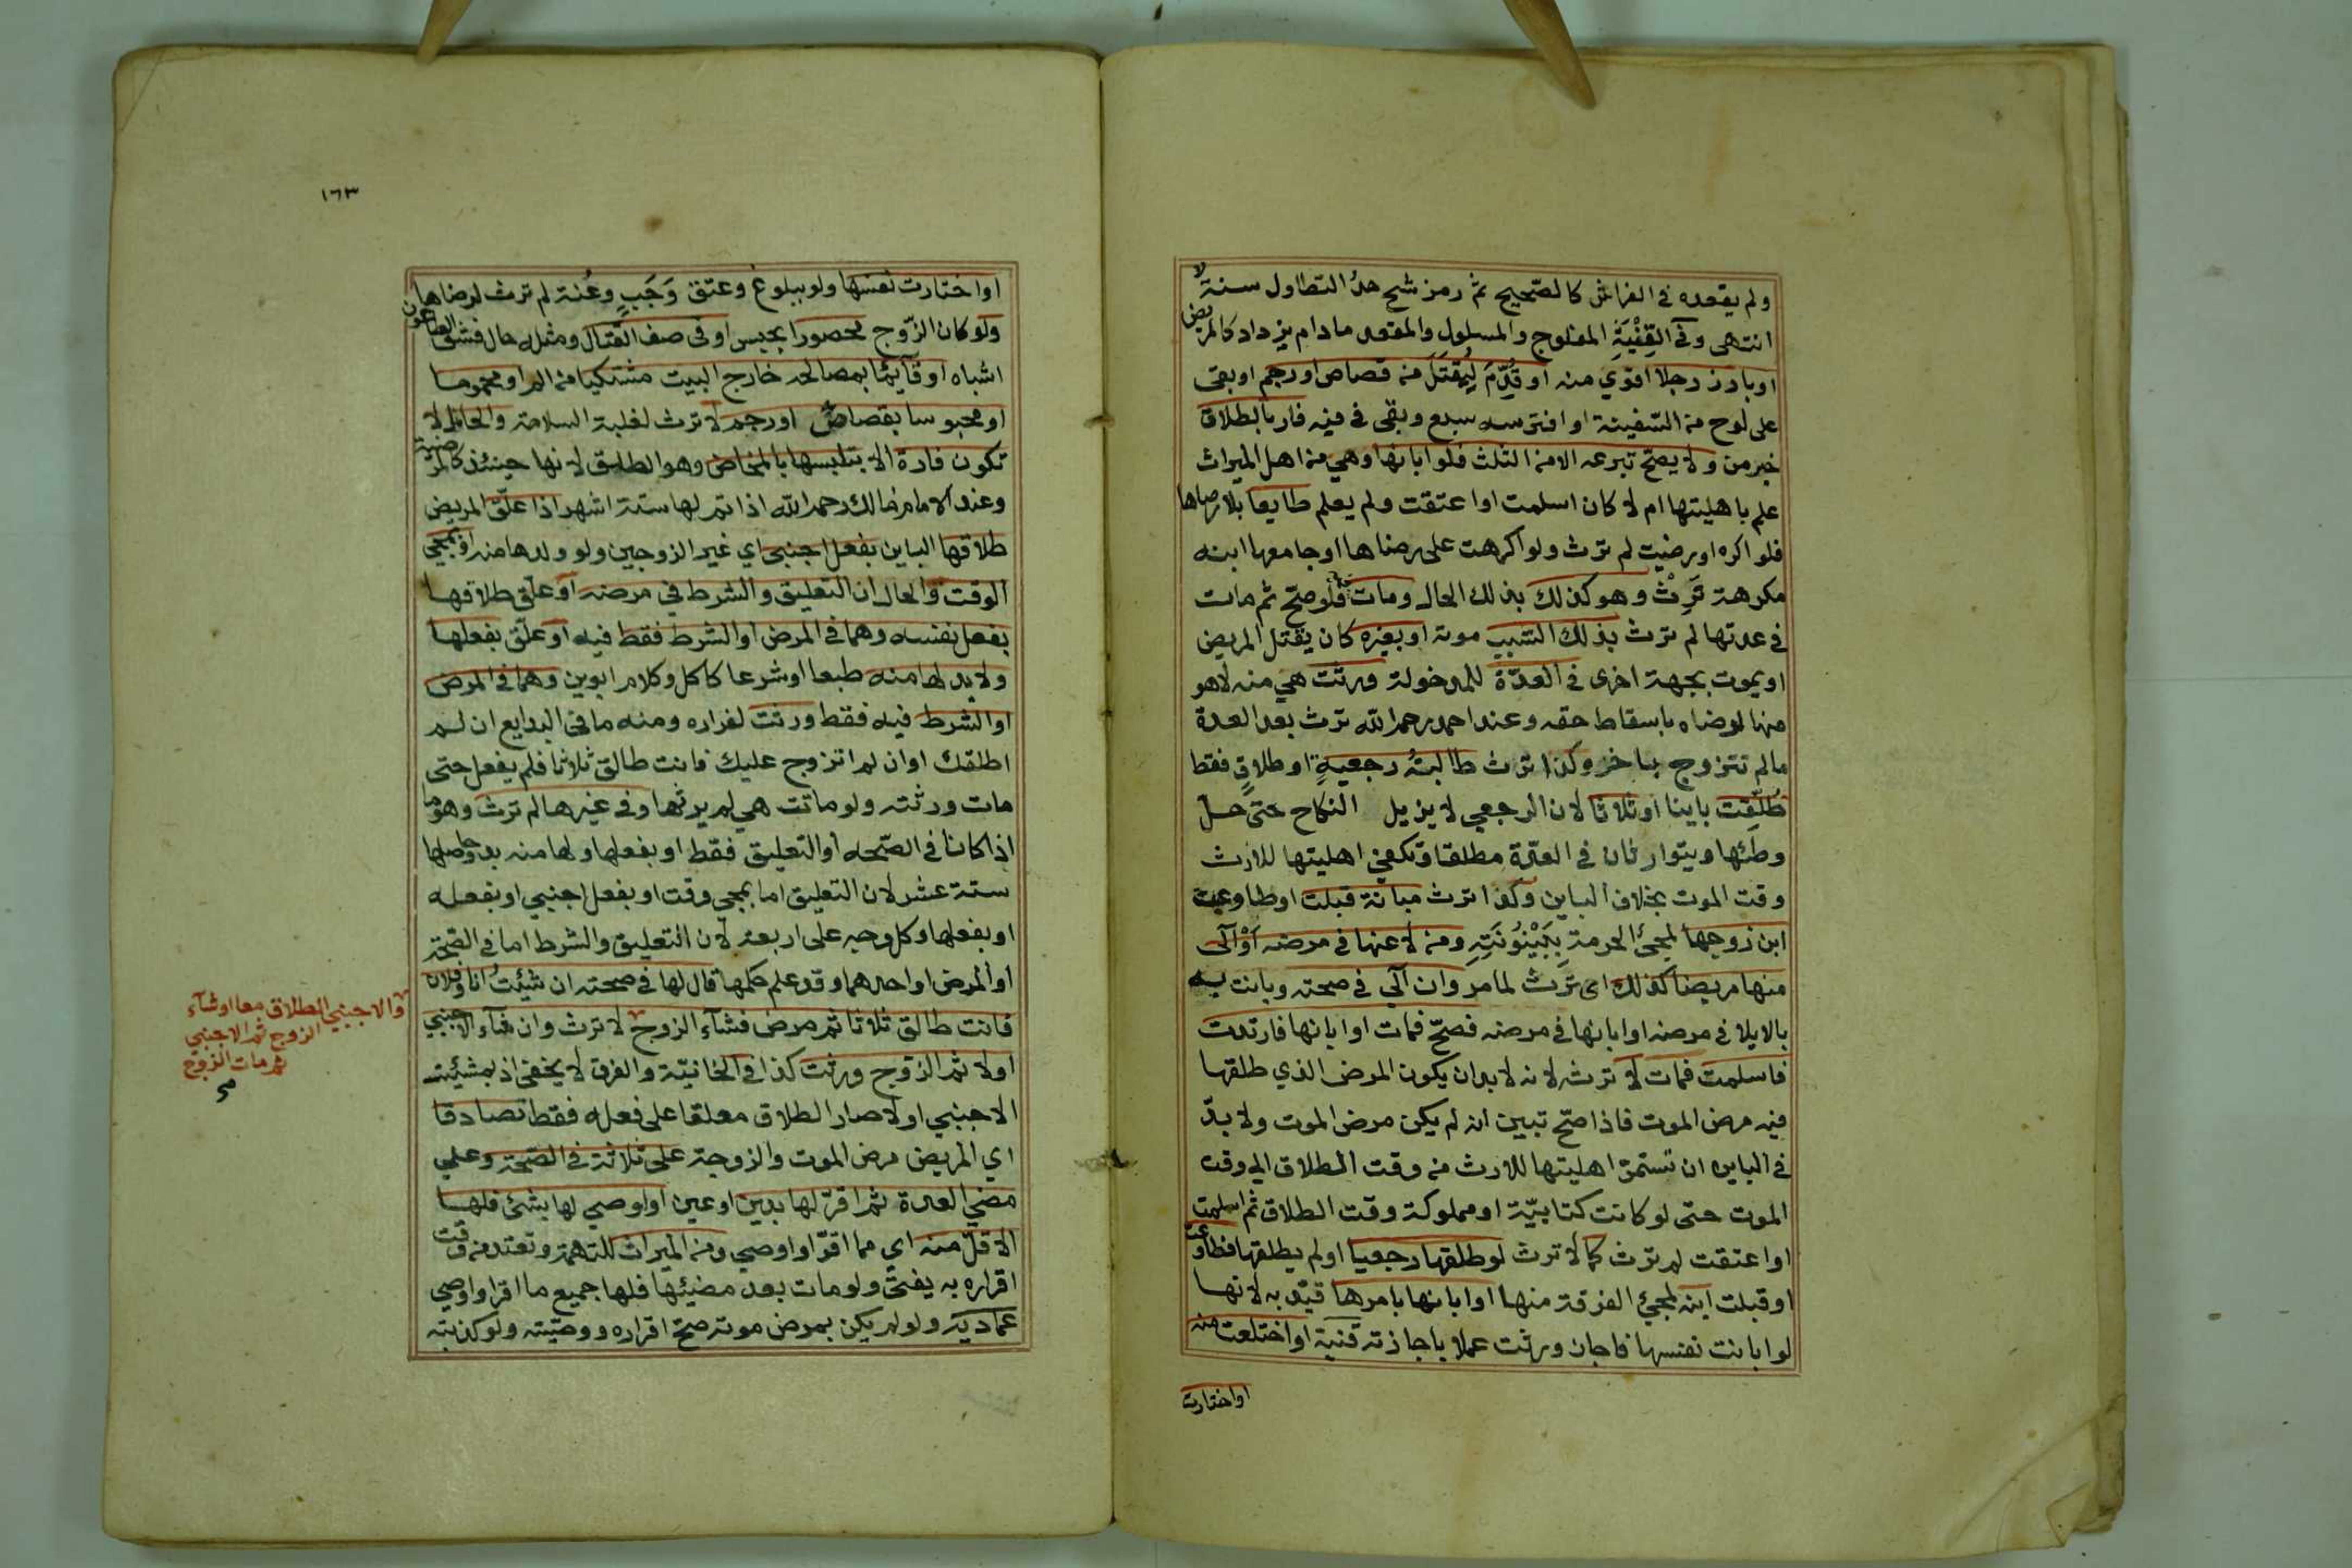 ولم يقعده في الفراش كالصحيح ثم رمز شح حد التطاول سنة
انتهى وفي القنية المفلوج والمسلول والمقعد مادام يزداد كالمريض
او بارز رجلا اقوي منه او قُدِّمَ لِيُقتَلَ من قصاص او رجم او بقى
على لوح من السفينة او افترسه سبع وبقى في فيه فار بالطلاق
خبر من ولا يصح تبرعه الا من الثلث فلو ابانها وهي من اهل الميراث
علم باهليتها ام لا كان اسلمت او اعتقت ولم يعلم طايعا بلا رضاها
فلو اكره او رضيت لم ترث ولو اكرهت على رضاها او جامعها ابنه
مكرهة تَرِثْ وهو كذلك بذلك الحال ومات فلو صح ثم مات
في عدتها لم ترث بذلك السبب موته او بغيره كان يقتل المريض
او يموت بجهة اخرى في العدة للمدخولة ورثت هي منه لا هو
منها لرضاه باسقاط حقه وعند احمد رحمه الله ترث بعد العدة
مالم تتزوج باخر وكذا ترث طالبةُ رجعيةٍ او طلاقٍ فقط
طُلِّقِت باينا او ثلاثا لان الرجعي لا يزيل النكاح حتى حل
وطئها ويتوارثان في العدة مطلقا وتكفي اهليتها للارث
وقت الموت بخلاف الباين وكذا ترث مبانة قبلت او طاوعت
ابن زوجها لمجئ الحرمة بِبَيْنُونَتِهِ ومن لاعنها في مرضه اَوْ آلى
منها مريضا كذلك اى تَرث لما مر وان آلي في صحته وبانت به
بالايلا في مرضه او ابانها في مرضه فصحّ فمات او ابانها فارتدت
فاسلمت فمات لا ترث لانه لابد ان يكون المرض الذي طلقها
فيه مرض الموت فاذا صحّ تبين انه لم يكن مرض الموت ولا بدّ
في الباين ان تستمر اهليتها للارث من وقت الطلاق الى وقت
الموت حتى لو كانت كتابيّة او مملوكة وقت الطلاق ثم اسلمت
او اعتقت لم ترث كما لا ترث لو طلقها رجعيا او لم يطلقها فطاوعت
او قبلت ابنه لمجئ الفرقة منها او ابانها بامرها قيّد به لانها
لو ابانت نفسها فاجاز ورثت عملا باجازته قنية او اختلعت منه
او اختارت
١٦٣
او اختارت نفسها ولو ببلوغ وعتق وَجَبٍ وعُنة لم ترث لرضاها
ولو كان الزّوج محصورا بحبس او في صف القتال ومثله حال فشو الطاعون
اشباه او قآيما بمصالحه خارج البيت مشتكيا من الم او محموما
او محبوسا بقصاص او رجم لا ترث لغلبة السلامة والحامل لا
تكون فارة الا بتلبسها بالمخاض وهو الطلق لانها حينئذ كالمريضة
وعند الامام مالك رحمه الله اذا تم لها ستة اشهر اذا علّق المريض
طلاقها الباين بفعل اجنبي اي غير الزوجين ولو ولدها منه او بمجي
الوقت والحال ان التعليق والشرط في مرضه او علق طلاقها
بفعل نفسه وهما في المرض او الشرط فقط فيه او علّق بفعلها
ولا بد لها منه طبعا او شرعا كاكل وكلام ابوين وهما في المرض
او الشرط فيه فقط ورثت لفراره ومنه ما في البدايع ان لم
اطلقك او ان لم اتزوج عليك فانت طالق ثلاثا فلم يفعل حتى
مات ورثته ولو ماتت هي لم يرثها وفي غيرها لم ترث وهو ما
اذا كانا في الصّحه او التعليق فقط او بفعلها ولها منه بد وحاصلها
ستة عشر لان التعليق اما بمجي وقت او بفعل اجنبي او بفعله
او بفعلها وكل وجه على اربعة لان التعليق والشرط اما في الصّحة
او المرض او احدهما وقد علم حكمها قال لها في صحته ان شيئتُ انا وفلان
فانت طالق ثلاثا ثم مرض فشآء الزوج لا ترث وان شآء الاجنبي
اولا ثم الزوج ورثت كذا في الخانيّة والفرق لا يخفى اذ بمشيئة
الاجنبي اولا صار الطلاق معلقا على فعله فقط تصادقا
اي المريض مرض الموت والزوجة على ثلاثة في الصّحة وعلي
مضي العدة ثم اقرّ لها بدين او عين او اوصي لها بشئ فلها
الاقلّ منه اي مما اقرّ او اوصي ومن الميراث للتهمة وتعتد من وقت
اقراره به يفتى ولو مات بعد مضيّها فلها جميع ما اقر او اوصي
عمادية ولو لم يكن بمرض موته صح اقراره ووصيّته ولو كذبته
والاجنبي الطلاق معا او شآء
الزوج ثم الاجنبي
ثم مات الزوج